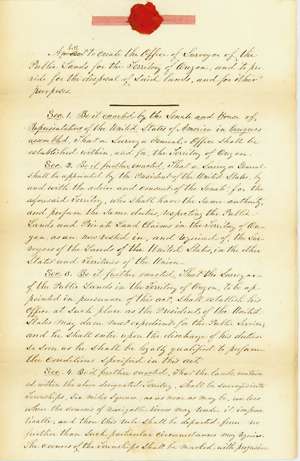 A Bill to create the Office of Surveyor of the
Public Lands for the Territory of Oregon, and to pro
vide for the disposal of Said Lands, and for other
purposes.
Sec. 1. Be it enacted by the Senate and House of
Representatives of the United States of America in Congress
assembled, That a Surveyor General's Office shall be
established within, and for the Territory of Oregon.
Sec. 2. Be it further enacted, That a Surveyor General
shall be appointed by the President of the United States, by
and with the advice and consent of the Senate for the
aforesaid Territory, who shall have the same authority,
and perform the same duties, respecting the Public
Lands and Private Land Claims in the Territory of Ore
gon, as are now vested in, and required of, the Sur
veyors of the Lands of the United States, in the other
States and Territories of the Union.
Sec. 3. Be it further enacted, That the Surveyor
of the Public Lands in the Territory of Oregon, to be ap
pointed in pursuance of this act, shall establish his
Office at such place as the President of the United
States may deem most expedient for the Public Service,
and he shall enter upon the discharge of his duties
so soon as he shall be legally qualified to perform
the conditions specified in this act.
Sec. 4. Be it further enacted, That the lands contain
ed within the above designated Territory, shall be Surveyed into
Townships, Six miles Square, as as near as may be, unless
where the courses of navigable rivers may render it imprac
ticable, and then this rule shall be departed from no
further than such particular circumstances may require.
The corners of the Townships shall be marked with progressive